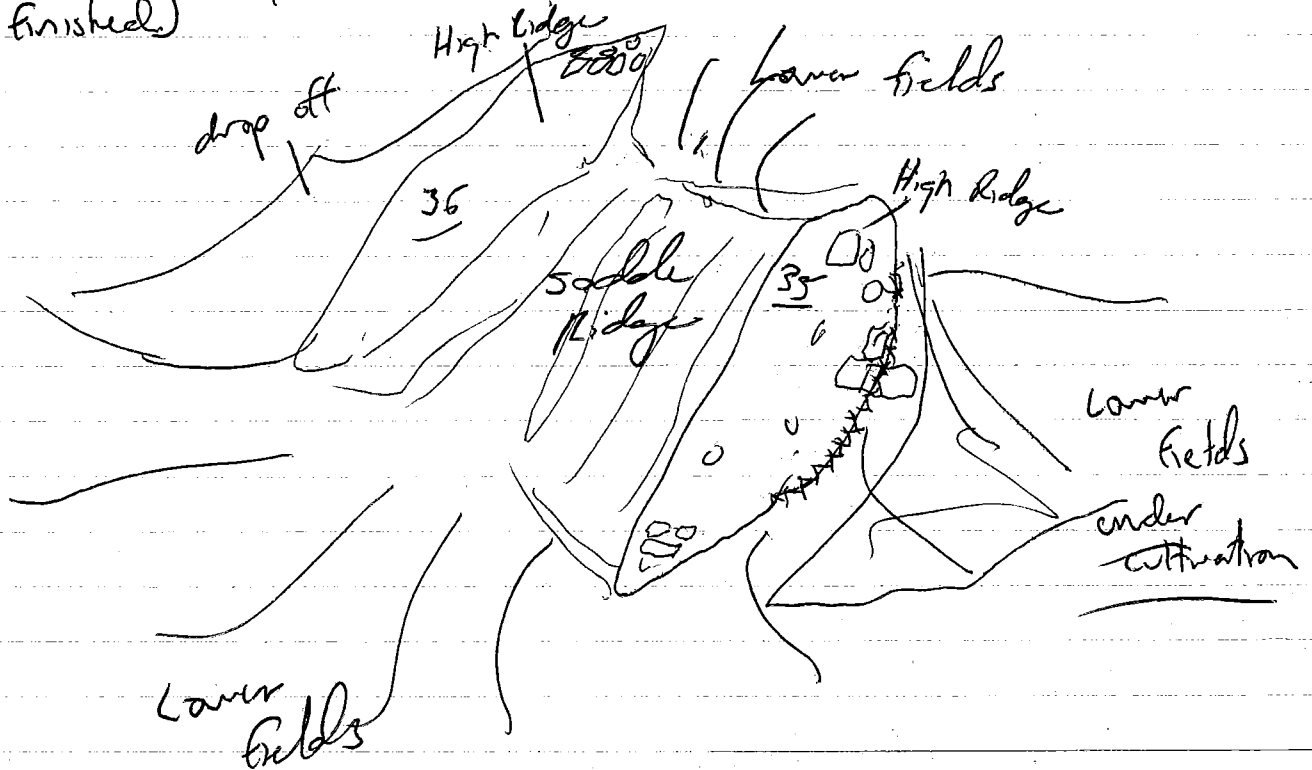 finished)
High Ridge
Lower fields
drop off
High Ridge
36
saddle
Ridge
35
Lower
fields
under
cultivation
Lower
fields